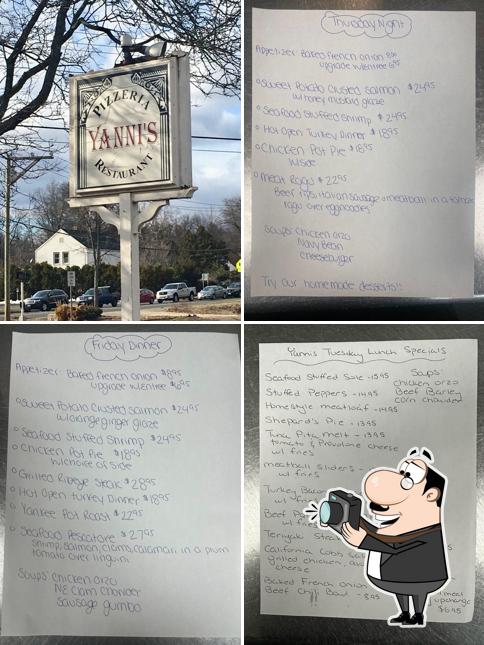 PIZZERIA
YANNI'S
RESTAURANT
Thursday Night
Appetizer: Baked French onion 8.95
upgrade w/entree 6.95
Sweet Potato Crusted Salmon $24.95
w/honey mustard glaze
Seafood Stuffed Shrimp $24.95
Hot Open Turkey Dinner $18.95
Chicken Pot Pie $18.95
w/side
Meat Ragu $22.95
Beef tips, italian sausage + meatball in a tomato
ragu over eggnoodles
Soups: Chicken orzo
Navy Bean
Cheeseburger
Try our homemade desserts!!
Friday Dinner
Appetizer: Baked French onion $8.95
upgrade w/entree $6.95
Sweet Potato Crusted Salmon $24.95
w/orange ginger glaze
Seafood Stuffed Shrimp $24.95
Chicken Pot Pie $18.95
w/choice of side
Grilled Ribeye Steak $28.95
Hot Open Turkey Dinner $18.95
Yankee Pot Roast $22.95
Seafood Pescatore $27.95
shrimp, salmon, clams, calamari in a plum
tomato over linguini
Soups: Chicken orzo
NE Clam Chowder
Sausage gumbo
Yannis Tuesday Lunch Specials
Seafood Stuffed Sole - 15.95
Stuffed Peppers - 14.95
Homestyle meatloaf - 14.95
Shepard's Pie - 13.95
Tuna Pita melt - 13.95
tomato & Provolone cheese
w/ fries
Soups:
chicken orzo
Beef Barley
corn chowder
meatball Sliders -
w/ fries
Turkey Baco
w/ fries
Beef Po
w/ frie
Teriyaki Stea
California Cobb sal
grilled chicken, avo
cheese
Baked French Onion
Beef Chili Bowl - 8.95
meal
upcharge
$6.95